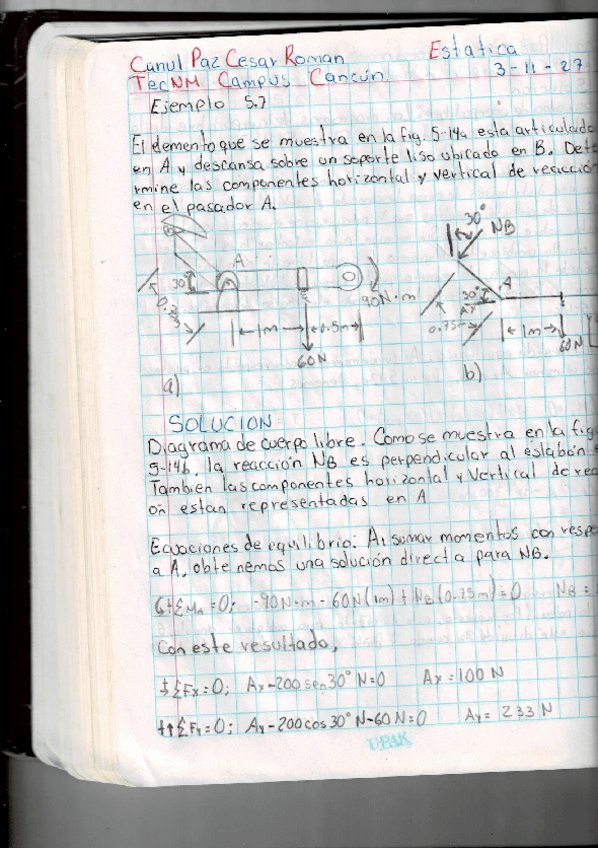 Canul Paz Cesar Roman Estatica
TecNM Campus Cancún 3-11-27
Ejemplo 5.7
El elemento que se muestra en la fig. 5-14a esta articulado
en A y descansa sobre un soporte liso ubicado en B. Dete
rmine las componentes horizontal y vertical de reacción
en el pasador A.
30°
NB
A
30°
90N·m
0.75m
1m
0.5m
60N
a)
A
30°
Ay
0.75m
1m
60N
b)
SOLUCION
Diagrama de cuerpo libre. Como se muestra en la fig
5-14b, la reacción NB es perpendicular al eslabón
Tambien las componentes horizontal y vertical de reac
on estan representadas en A
Ecuaciones de equilibrio: Al sumar momentos con respe
a A, obtenemos una solución directa para NB.
↺+ΣMA=0; -90N·m-60N(1m)+NB(0.75m)=0 NB=
Con este resultado,
ΣFx=0; Ax-200sen30°N=0 Ax=100N
+↑ΣFy=0; Ay-200cos30°N-60N=0 Ay=233N